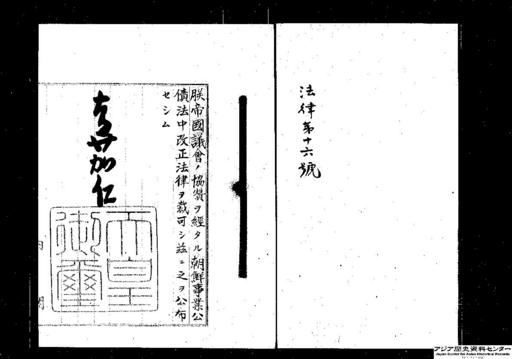 法律第十六號
朕帝國議會ノ協贊ヲ經タル朝鮮事業公
債法中改正法律ヲ裁可シ茲ニ之ヲ公布
セシム
嘉仁
天皇
御璽
アジア歴史資料センター
Japan Center for Asian Historical Records